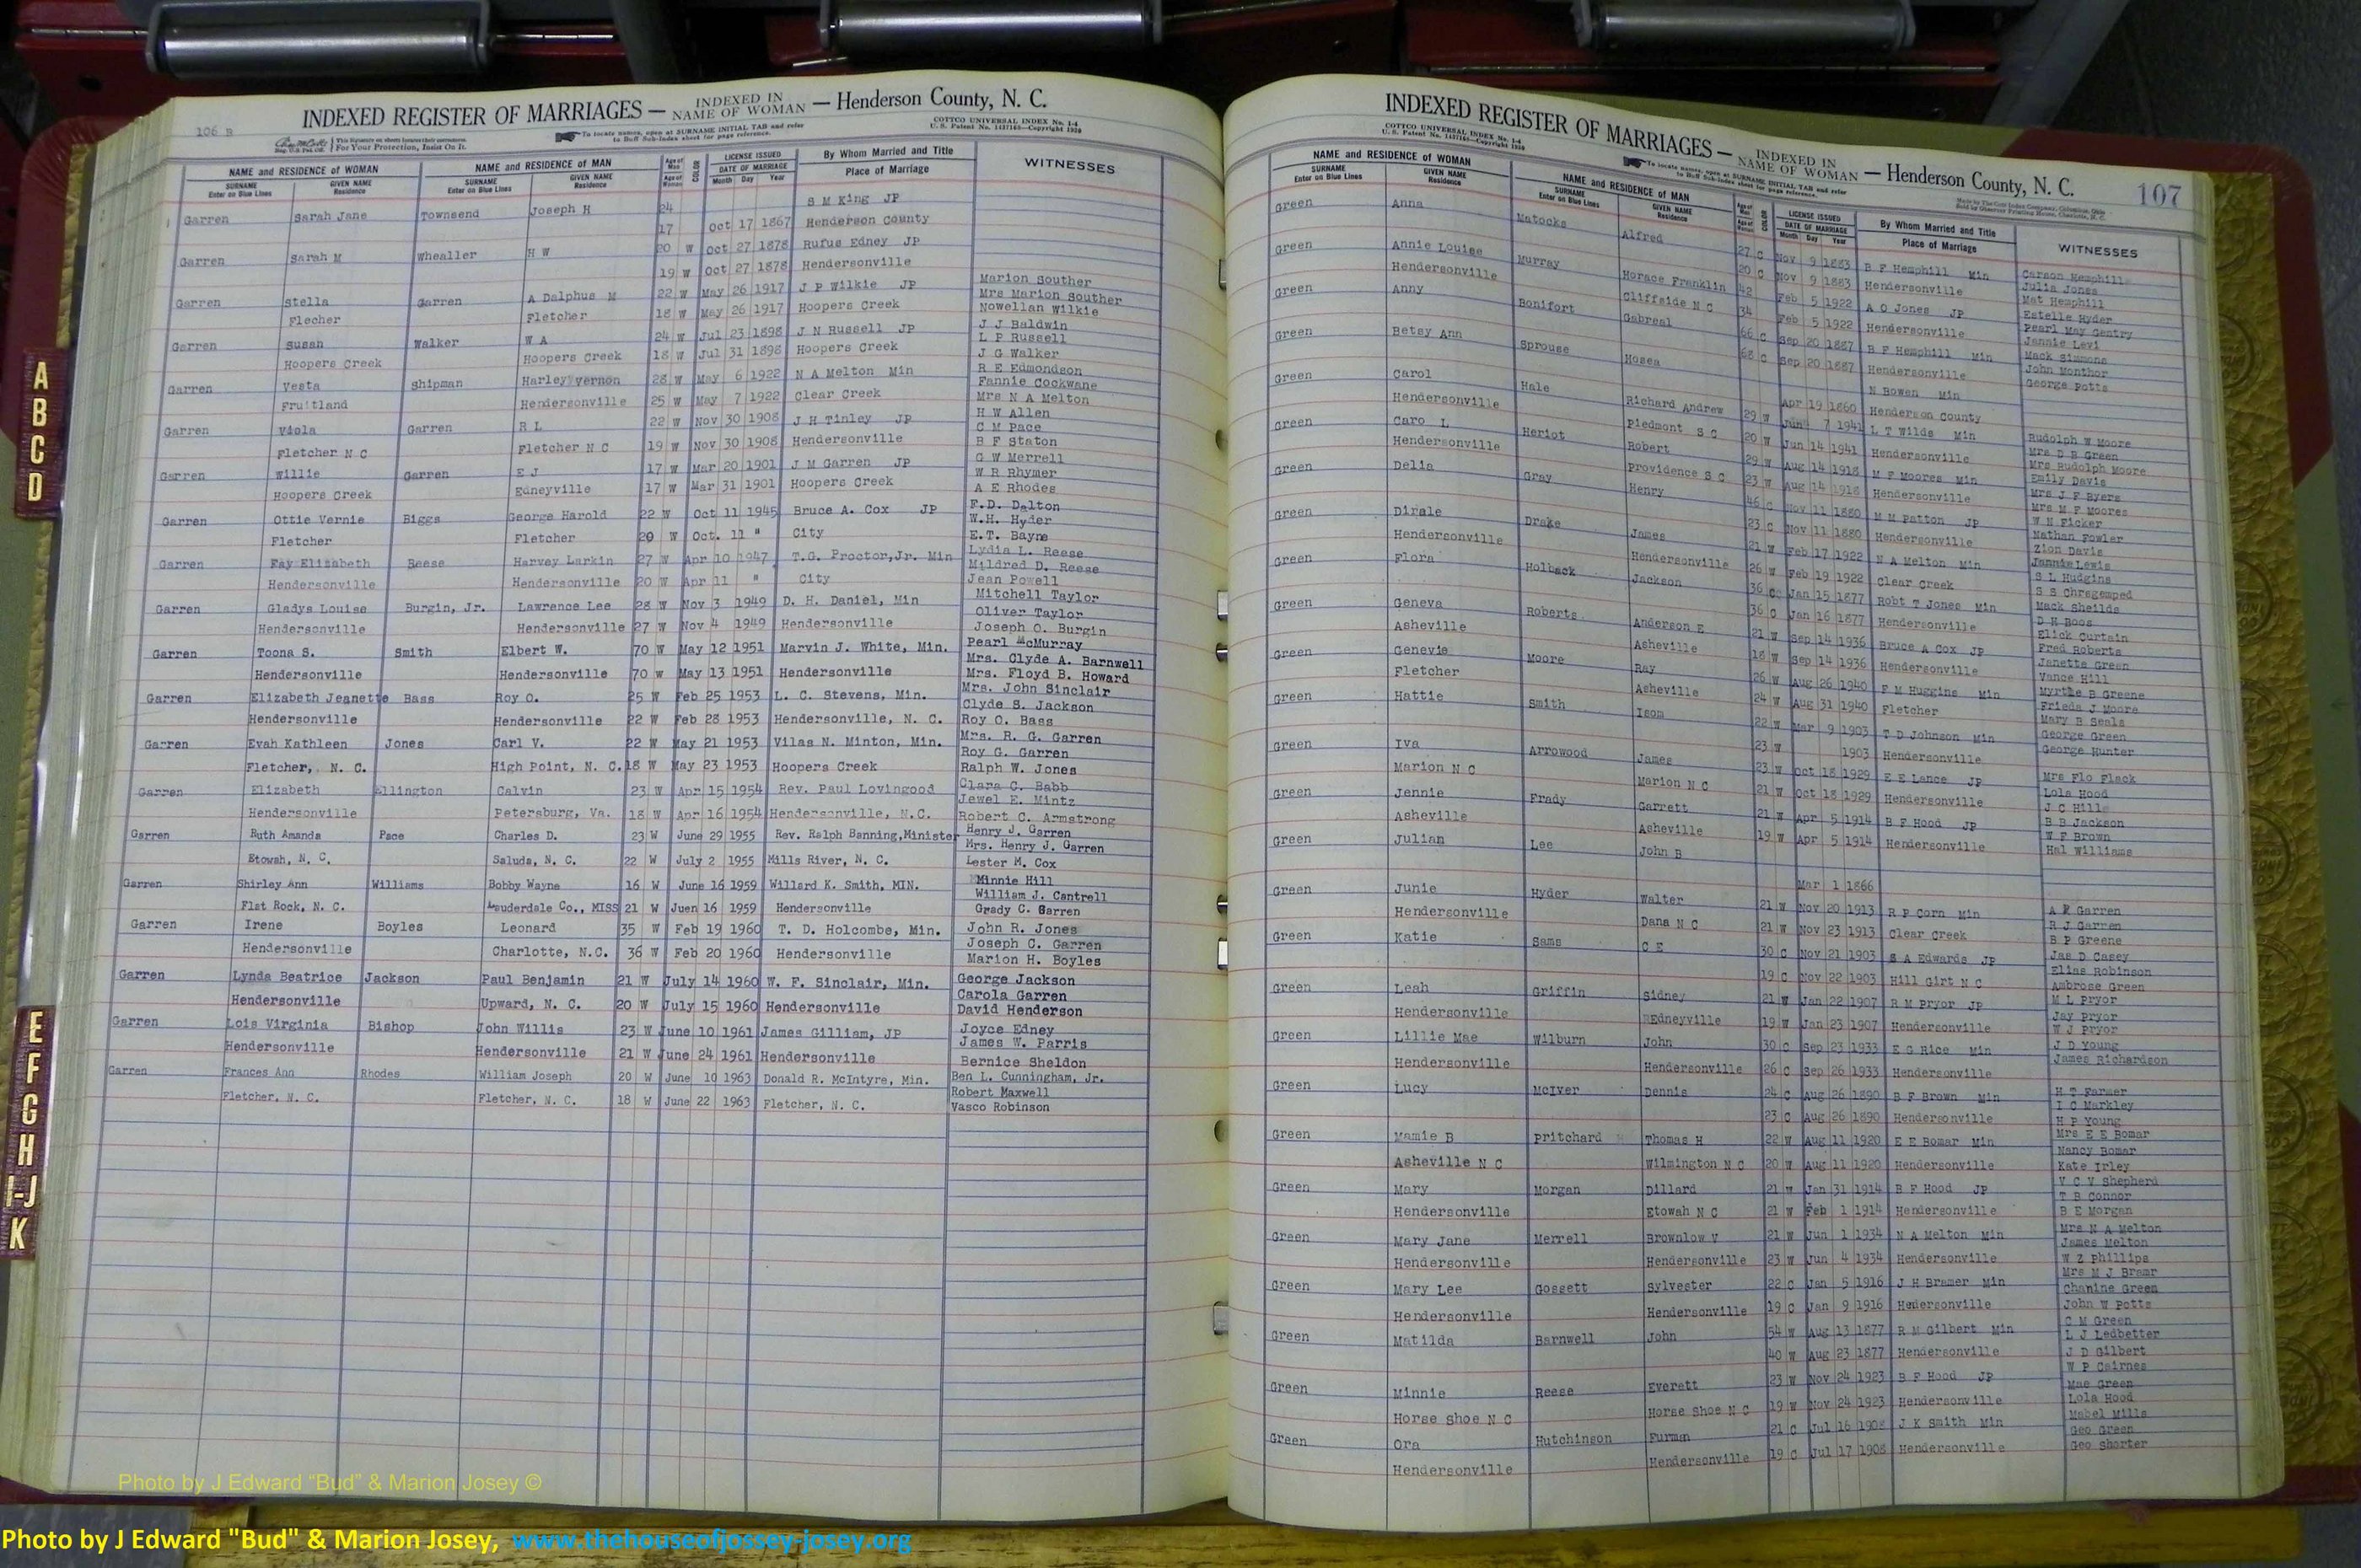 106 B
INDEXED REGISTER OF MARRIAGES — INDEXED IN NAME OF WOMAN — Henderson County, N. C.
This Signature on sheets insures their correctness. For Your Protection, Insist On It.
To locate names, open at SURNAME INITIAL TAB and refer to Buff Sub-Index sheet for page reference.
COTTCO UNIVERSAL INDEX No. 1-4
U. S. Patent No. 1437160—Copyright 1920
NAME and RESIDENCE OF WOMAN NAME and RESIDENCE OF MAN Age of Man Age of Woman COLOR LICENSE ISSUED DATE OF MARRIAGE By Whom Married and Title Place of Marriage WITNESSES
SURNAME Enter on Blue Lines GIVEN NAME Residence SURNAME Enter on Blue Lines GIVEN NAME Residence Month Day Year
Garren Sarah Jane Townsend Joseph H 24 S M King JP
17 Oct 17 1867 Henderson County
Garren Sarah M Wheeller H W 20 W Oct 27 1878 Rufus Edney JP
19 W Oct 27 1878 Hendersonville
Garren Stella Garren A Dalphus M 22 W May 26 1917 J P Wilkie JP Marion Souther
Flecher Fletcher 18 W May 26 1917 Hoopers Creek Mrs Marion Souther
Nowellan Wilkie
Garren Susan Walker W A 24 W Jul 23 1898 J N Russell JP J J Baldwin
Hoopers Creek Hoopers Creek 18 W Jul 31 1898 Hoopers Creek L P Russell
J G Walker
Garren Vesta Shipman Harley vernon 28 W May 6 1922 N A Melton Min R E Edmondson
Fruitland Hendersonville 25 W May 7 1922 Clear Creek Fannie Cockwane
Mrs N A Melton
Garren Viola Garren R L 22 W Nov 30 1908 J H Tinley JP H W Allen
Fletcher N C Fletcher N C 19 W Nov 30 1908 Hendersonville C M Pace
B F Staton
Garren Willie Garren E J 17 W Mar 20 1901 J M Garren JP G W Merrell
Hoopers Creek Edneyville 17 W Mar 31 1901 Hoopers Creek W R Rhymer
A E Rhodes
Garren Ottie Vernie Biggs George Harold 22 W Oct 11 1945 Bruce A. Cox JP F.D. Dalton
Fletcher Fletcher 20 W Oct. 11 " City W.H. Hyder
E.T. Bayne
Garren Fay Elizabeth Reese Harvey Larkin 27 W Apr 10 1947 T.G. Proctor,Jr. Min Lydia L. Reese
Hendersonville Hendersonville 20 W Apr 11 " City Mildred D. Reese
Jean Powell
Garren Gladys Louise Burgin, Jr. Lawrence Lee 28 W Nov 3 1949 D. H. Daniel, Min Mitchell Taylor
Hendersonville Hendersonville 27 W Nov 4 1949 Hendersonville Oliver Taylor
Joseph O. Burgin
Garren Toona S. Smith Elbert W. 70 W May 12 1951 Marvin J. White, Min. Pearl McMurray
Hendersonville Hendersonville 70 W May 13 1951 Hendersonville Mrs. Clyde A. Barnwell
Mrs. Floyd B. Howard
Garren Elizabeth Jeanette Bass Roy O. 25 W Feb 25 1953 L. C. Stevens, Min. Mrs. John Sinclair
Hendersonville Hendersonville 22 W Feb 28 1953 Hendersonville, N. C. Clyde S. Jackson
Roy O. Bass
Garren Evah Kathleen Jones Carl V. 22 W May 21 1953 Vilas N. Minton, Min. Mrs. R. G. Garren
Fletcher, N. C. High Point, N. C. 18 W May 23 1953 Hoopers Creek Roy G. Garren
Ralph W. Jones
Garren Elizabeth Ellington Calvin 23 W Apr 15 1954 Rev. Paul Lovingood Clara C. Babb
Hendersonville Petersburg, Va. 18 W Apr 16 1954 Hendersonville, N.C. Jewel E. Mintz
Robert C. Armstrong
Garren Ruth Amanda Pace Charles D. 23 W June 29 1955 Rev. Ralph Banning,Minister Henry J. Garren
Etowah, N. C. Saluda, N. C. 22 W July 2 1955 Mills River, N. C. Mrs. Henry J. Garren
Lester M. Cox
Garren Shirley Ann Williams Bobby Wayne 16 W June 16 1959 Willard K. Smith, MIN. Minnie Hill
Flat Rock, N. C. Lauderdale Co., MISS 21 W Juen 16 1959 Hendersonville William J. Cantrell
Grady C. Garren
Garren Irene Boyles Leonard 35 W Feb 19 1960 T. D. Holcombe, Min. John R. Jones
Hendersonville Charlotte, N.C. 36 W Feb 20 1960 Hendersonville Joseph C. Garren
Marion H. Boyles
Garren Lynda Beatrice Jackson Paul Benjamin 21 W July 14 1960 W. F. Sinclair, Min. George Jackson
Hendersonville Upward, N. C. 20 W July 15 1960 Hendersonville Carola Garren
David Henderson
Garren Lois Virginia Bishop John Willis 23 W June 10 1961 James Gilliam, JP Joyce Edney
Hendersonville Hendersonville 21 W June 24 1961 Hendersonville James W. Parris
Bernice Sheldon
Garren Frances Ann Rhodes William Joseph 20 W June 10 1963 Donald R. McIntyre, Min. Ben L. Cunningham, Jr.
Fletcher, N. C. Fletcher, N. C. 18 W June 22 1963 Fletcher, N. C. Robert Maxwell
Vasco Robinson
INDEXED REGISTER OF MARRIAGES — INDEXED IN NAME OF WOMAN — Henderson County, N. C. 107
COTTCO UNIVERSAL INDEX No. 1-4
U. S. Patent No. 1437160—Copyright 1920
To locate names, open at SURNAME INITIAL TAB and refer to Buff Sub-Index sheet for page reference.
NAME and RESIDENCE OF WOMAN NAME and RESIDENCE OF MAN Age of Man Age of Woman COLOR LICENSE ISSUED DATE OF MARRIAGE By Whom Married and Title Place of Marriage WITNESSES
SURNAME Enter on Blue Lines GIVEN NAME Residence SURNAME Enter on Blue Lines GIVEN NAME Residence Month Day Year
Green Anna Matocks Alfred 27 C Nov 9 1883 B F Hemphill Min Carson Hemphill
20 C Nov 9 1883 Hendersonville Julia Jones
Mat Hemphill
Green Annie Louise Murray Horace Franklin 42 Feb 5 1922 A O Jones JP Estelle Hyder
Hendersonville Cliffside N C 34 Feb 5 1922 Hendersonville Pearl May Gentry
Jannie Levi
Green Anny Bonifort Gabreal 66 C Sep 20 1887 B F Hemphill Min Mack Simmons
68 C Sep 20 1887 Hendersonville John Monthor
George Potts
Green Betsy Ann Sprouse Hosea N Bowen Min
Apr 19 1860 Henderson County
Green Carol Hale Richard Andrew 29 W Jun 7 1941 L T Wilds Min Rudolph W Moore
Hendersonville Piedmont S C 20 W Jun 14 1941 Hendersonville Mrs D B Green
Mrs Rudolph Moore
Green Caro L Heriot Robert 29 W Aug 14 1918 M F Moores Min Emily Davis
Hendersonville Providence S C 23 W Aug 14 1918 Hendersonville Mrs J F Byers
Mrs M F Moores
Green Delia Gray Henry 46 C Nov 11 1880 M M Patton JP W N Ficker
23 C Nov 11 1880 Hendersonville Nathan Fowler
Zion Davis
Green Dirale Drake James 21 W Feb 17 1922 N A Melton Min Jannie Lewis
Hendersonville Hendersonville 26 W Feb 19 1922 Clear Creek S L Hudgins
S S Chregemped
Green Flora Holback Jackson 36 C Jan 15 1877 Robt T Jones Min Mack Sheilds
36 C Jan 16 1877 Hendersonville D H Boos
Elick Curtain
Green Geneva Roberts Anderson E 21 W Sep 14 1936 Bruce A Cox JP Fred Roberts
Asheville Asheville 18 W Sep 14 1936 Hendersonville Janette Green
Vance Hill
Green Genevie Moore Ray 26 W Aug 26 1940 F M Huggins Min Myrtle B Greene
Fletcher Asheville 24 W Aug 31 1940 Fletcher Frieda J Moore
Mary B Seals
Green Hattie Smith Isom 22 W Mar 9 1903 T D Johnson Min George Green
23 W 1903 Hendersonville George Hunter
Green Iva Arrowood James 23 W Oct 18 1929 E E Lance JP Mrs Flo Flack
Marion N C Marion N C 21 W Oct 18 1929 Hendersonville Lola Hood
J C Hill
Green Jennie Frady Garrett 21 W Apr 5 1914 B F Hood JP B B Jackson
Asheville Asheville 19 W Apr 5 1914 Hendersonville W F Brown
Hal Williams
Green Julian Lee John B
Mar 1 1866
Green Junie Hyder Walter 21 W Nov 20 1913 R P Corn Min A E Garren
Hendersonville Dana N C 21 W Nov 23 1913 Clear Creek R J Garren
B P Greene
Green Katie Sams C E 30 C Nov 21 1903 S A Edwards JP Jas D Casey
19 C Nov 22 1903 Hill Girt N C Elias Robinson
Ambrose Green
Green Leah Griffin Sidney 21 W Jan 22 1907 R M Pryor JP M L Pryor
Hendersonville Edneyville 19 W Jan 23 1907 Hendersonville Jay Pryor
W J Pryor
Green Lillie Mae Wilburn John 30 C Sep 23 1933 E G Rice Min J D Young
Hendersonville Hendersonville 26 C Sep 26 1933 Hendersonville James Richardson
Green Lucy McIver Dennis 24 C Aug 26 1890 B F Brown Min H T Farmer
23 C Aug 26 1890 Hendersonville I C Markley
H P Young
Green Mamie B Pritchard Thomas H 22 W Aug 11 1920 E E Bomar Min Mrs E E Bomar
Asheville N C Wilmington N C 20 W Aug 11 1920 Hendersonville Nancy Bomar
Kate Irley
Green Mary Morgan Dillard 21 W Jan 31 1914 B F Hood JP V C V Shepherd
Hendersonville Etowah N C 21 W Feb 1 1914 Hendersonville T B Connor
B E Morgan
Green Mary Jane Merrell Brownlow V 21 W Jun 1 1934 N A Melton Min Mrs N A Melton
Hendersonville Hendersonville 23 W Jun 4 1934 Hendersonville James Melton
W Z Phillips
Green Mary Lee Gossett Sylvester 22 C Jan 5 1916 J H Bramer Min Mrs M J Bramr
Hendersonville Hendersonville 19 C Jan 9 1916 Hendersonville Chanine Green
John W Potts
Green Matilda Barnwell John 54 W Aug 13 1877 R M Gilbert Min C M Green
40 W Aug 23 1877 Hendersonville L J Ledbetter
J D Gilbert
W P Cairnes
Green Minnie Reese Everett 23 W Nov 24 1923 B F Hood JP Mae Green
Horse Shoe N C Horse Shoe N C 19 W Nov 24 1923 Hendersonville Lola Hood
Mabel Mills
Green Ora Hutchinson Furman 21 C Jul 16 1908 J K Smith Min Geo Green
Hendersonville Hendersonville 19 C Jul 17 1908 Hendersonville Geo Shorter
A
B
C
D
E
F
G
H
I-J
K
Photo by J Edward "Bud" & Marion Josey ©
Photo by J Edward "Bud" & Marion Josey, www.thehouseofjossey-josey.org